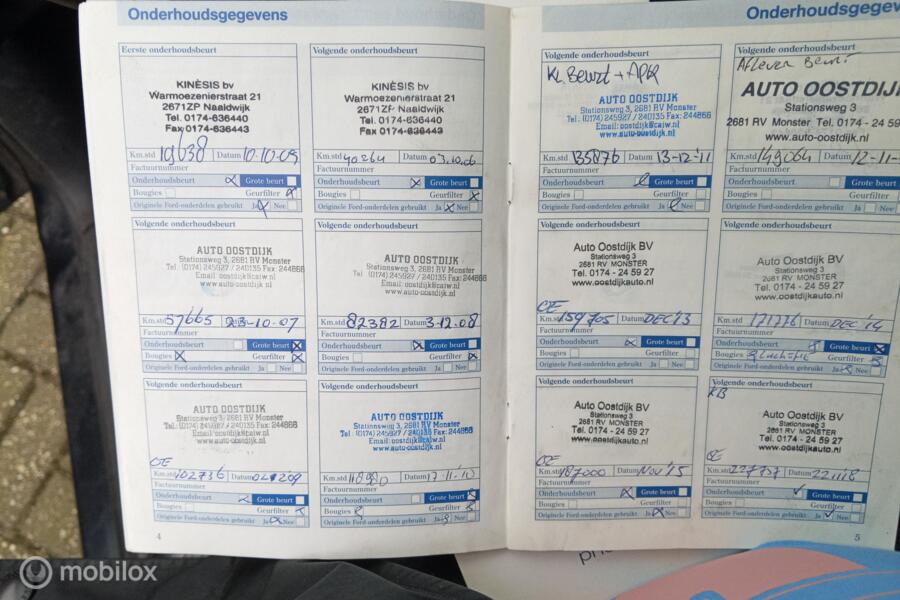 Onderhoudsgegevens
Eerste onderhoudsbeurt
KINÈSIS bv
Warmoezenierstraat 21
2671ZP Naaldwijk
Tel. 0174-636440
Fax 0174-636443
Km.std 19038 Datum
Factuurnummer
Onderhoudsbeurt Grote beurt
Bougies Geurfilter
Originele Ford-onderdelen gebruikt Ja Nee
Volgende onderhoudsbeurt
KINÈSIS bv
Warmoezenierstraat 21
2671ZP Naaldwijk
Tel. 0174-636440
Fax 0174-636443
Km.std 40264 Datum 03.10.06
Factuurnummer
Onderhoudsbeurt Grote beurt
Bougies Geurfilter
Originele Ford-onderdelen gebruikt Ja Nee
Volgende onderhoudsbeurt
AUTO OOSTDIJK
Stationsweg 3, 2681 RV Monster
Tel. (0174) 245927 / 240135 Fax: 244866
Email: oostdijk@caiw.nl
www.auto-oostdijk.nl
Km.std 57665 Datum 23-10-07
Factuurnummer
Onderhoudsbeurt Grote beurt
Bougies Geurfilter
Originele Ford-onderdelen gebruikt Ja Nee
Volgende onderhoudsbeurt
AUTO OOSTDIJK
Stationsweg 3, 2681 RV Monster
Tel. (0174) 245927 / 240135 Fax: 244866
Email: oostdijk@caiw.nl
www.auto-oostdijk.nl
Km.std 82382 Datum 3-12-08
Factuurnummer
Onderhoudsbeurt Grote beurt
Bougies Geurfilter
Originele Ford-onderdelen gebruikt Ja Nee
Volgende onderhoudsbeurt
AUTO OOSTDIJK
Stationsweg 3, 2681 RV Monster
Tel. (0174) 245927 / 240135 Fax: 244866
Email: oostdijk@caiw.nl
www.auto-oostdijk.nl
Km.std 102736 Datum
Factuurnummer
Onderhoudsbeurt Grote beurt
Bougies Geurfilter
Originele Ford-onderdelen gebruikt Ja Nee
Volgende onderhoudsbeurt
AUTO OOSTDIJK
Stationsweg 3, 2681 RV Monster
Tel. (0174) 245927 / 240135 Fax: 244866
Email: oostdijk@caiw.nl
www.auto-oostdijk.nl
Km.std Datum
Factuurnummer
Onderhoudsbeurt Grote beurt
Bougies Geurfilter
Originele Ford-onderdelen gebruikt Ja Nee
4
Onderhoudsgegev
Volgende onderhoudsbeurt
Kl Beurt + APK
AUTO OOSTDIJK
Stationsweg 3, 2681 RV Monster
Tel. (0174) 245927 / 240135 Fax: 244866
Email: oostdijk@caiw.nl
www.auto-oostdijk.nl
Km.std 135876 Datum 13-12-'11
Factuurnummer
Onderhoudsbeurt Grote beurt
Bougies Geurfilter
Originele Ford-onderdelen gebruikt Ja Nee
Volgende onderhoudsbeurt
Aflever Beurt
AUTO OOSTDIJ
Stationsweg 3
2681 RV Monster Tel. 0174
www.auto-oostdijk.nl
Km.std 149064 Datum 12-11-
Factuurnummer
Onderhoudsbeurt Grote beurt
Bougies Geurfilter
Originele Ford-onderdelen gebruikt Ja
Volgende onderhoudsbeurt
Auto Oostdijk BV
Stationsweg 3
2681 RV MONSTER
Tel. 0174 - 24 59 27
www.oostdijkauto.nl
Km.std 159705 Datum DEC '13
Factuurnummer
Onderhoudsbeurt Grote beurt
Bougies Geurfilter
Originele Ford-onderdelen gebruikt Ja Nee
Volgende onderhoudsbeurt
Auto Oostdijk BV
Stationsweg 3
2681 RV MONSTER
Tel. 0174 - 24 59 27
www.oostdijkauto.nl
Km.std 171276 Datum DEC '14
Factuurnummer
Onderhoudsbeurt Grote beurt
Bougies Geurfilter
Originele Ford-onderdelen gebruikt Ja Nee
Volgende onderhoudsbeurt
Auto Oostdijk BV
Stationsweg 3
2681 RV MONSTER
Tel. 0174 - 24 59 27
www.oostdijkauto.nl
Km.std 187000 Datum Nov '15
Factuurnummer
Onderhoudsbeurt Grote beurt
Bougies Geurfilter
Originele Ford-onderdelen gebruikt Ja Nee
Volgende onderhoudsbeurt
Auto Oostdijk BV
Stationsweg 3
2681 RV MONSTER
Tel. 0174 - 24 59 27
www.oostdijkauto.nl
Km.std 227757 Datum
Factuurnummer
Onderhoudsbeurt Grote beurt
Bougies Geurfilter
Originele Ford-onderdelen gebruikt Ja Nee
5
mobilox